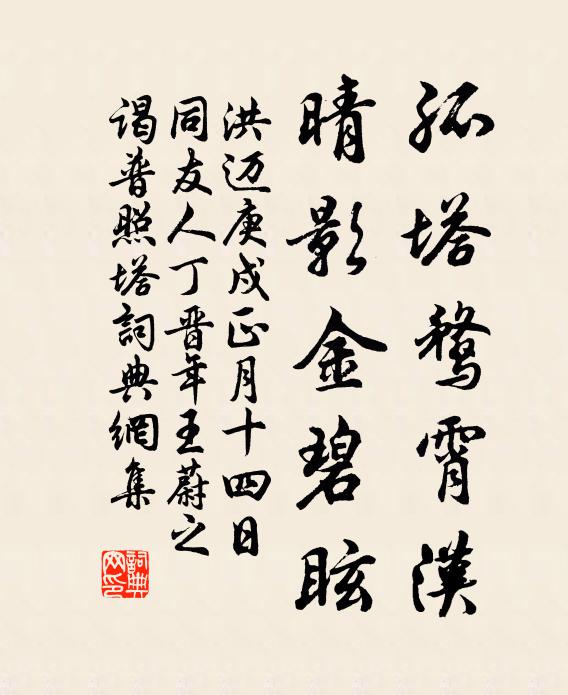 孤塔鶩霄漢
晴影金碧眩
洪迈庚戌正月十四日
同友人丁晋年王蔚之
谒普照塔詞典網集
詞典网印